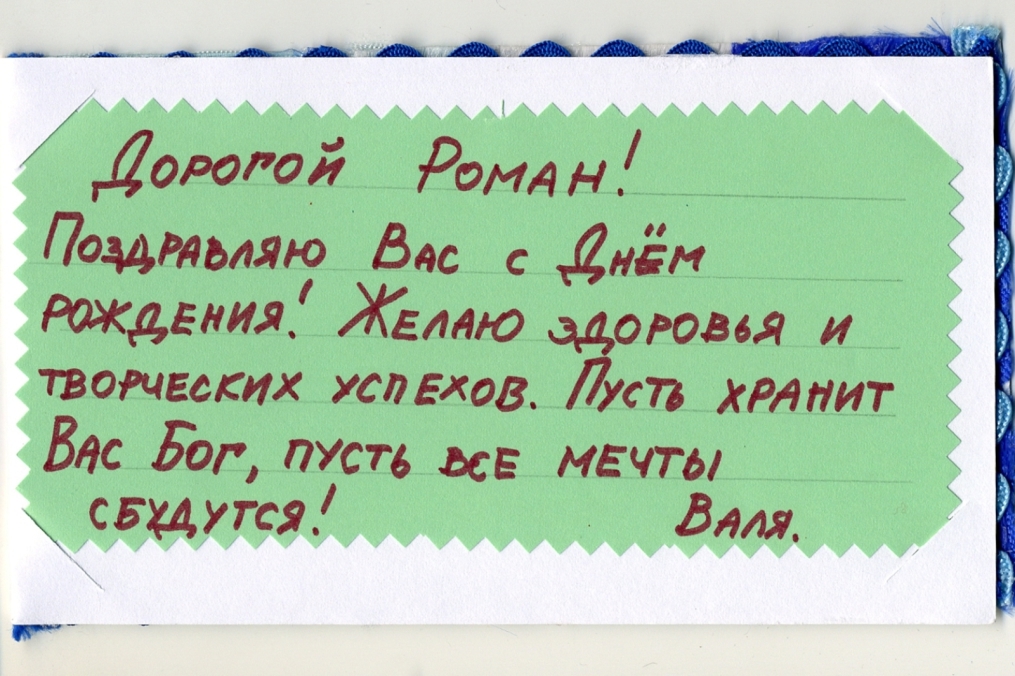 Дорогой Роман!
Поздравляю Вас с Днём
рождения! Желаю здоровья и
творческих успехов. Пусть хранит
Вас Бог, пусть все мечты
сбудутся! Валя.